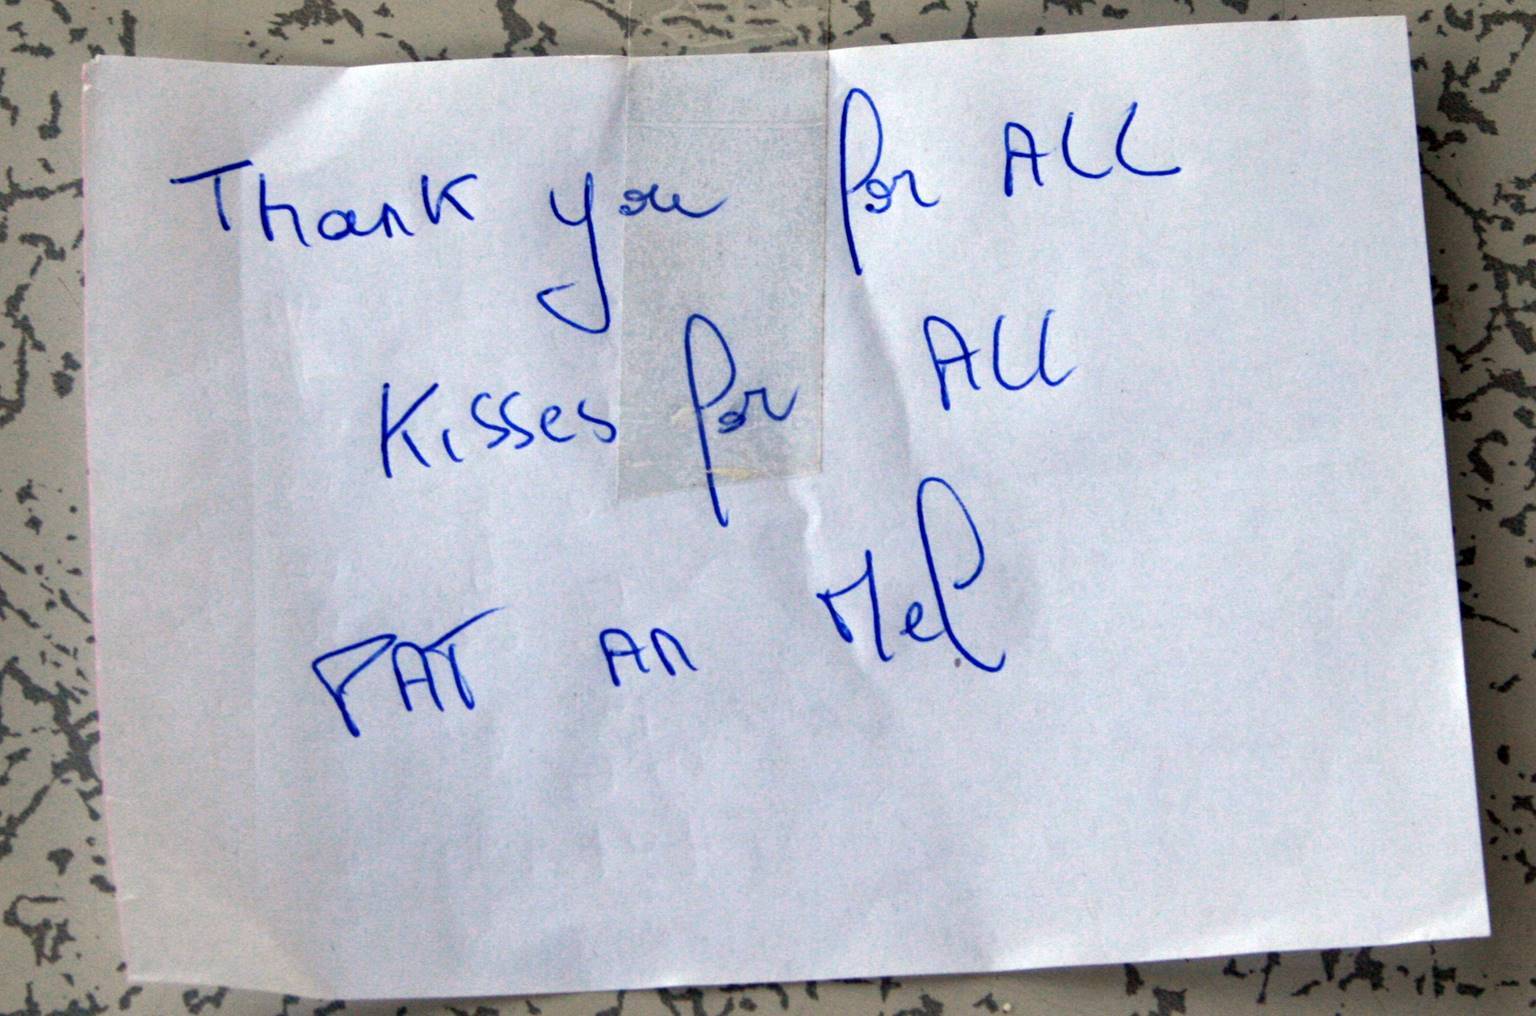 Thank you for ALL
Kisses for ALL
PAT an Mel